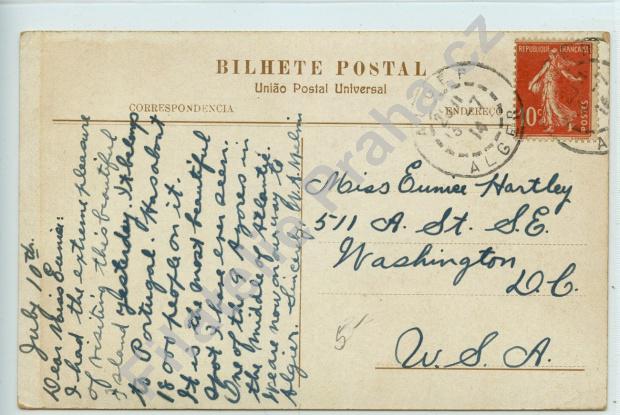 BILHETE POSTAL
União Postal Universal
CORRESPONDENCIA
ENDEREÇO
REPUBLIQUE FRANÇAISE
10c
POSTES
ALGER
ALGER
14
July 10th.
Dear Miss Eunice:
I had the extreme pleasure
of visiting this beautiful
island yesterday. It belongs
to Portugal. Has about
18000 people on it.
It is the most beautiful
spot I have ever seen.
One of the 9 Azores in
the middle of Atlantic.
We are now on our way to
Algier. Sincerely
Miss Eunice Hartley
511 A. St. S.E.
Washington
D.C.
U.S.A.
5
Filatelie Praha.cz